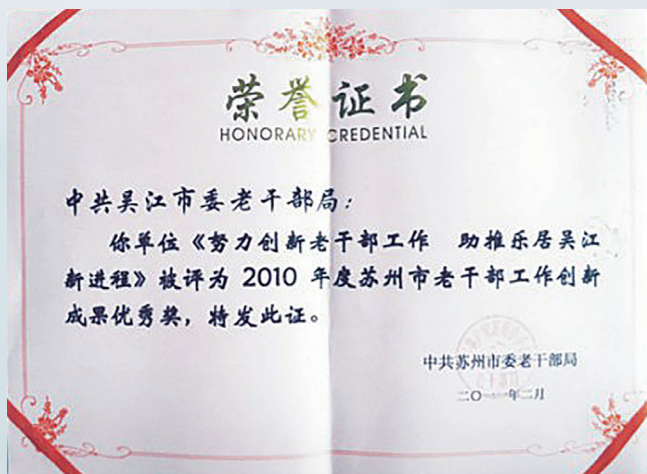 荣誉证书
HONORARY CREDENTIAL
中共吴江市委老干部局：
你单位《努力创新老干部工作 助推乐居吴江
新进程》被评为 2010 年度苏州市老干部工作创新
成果优秀奖，特发此证。
中共苏州市委老干部局
二〇一一年二月